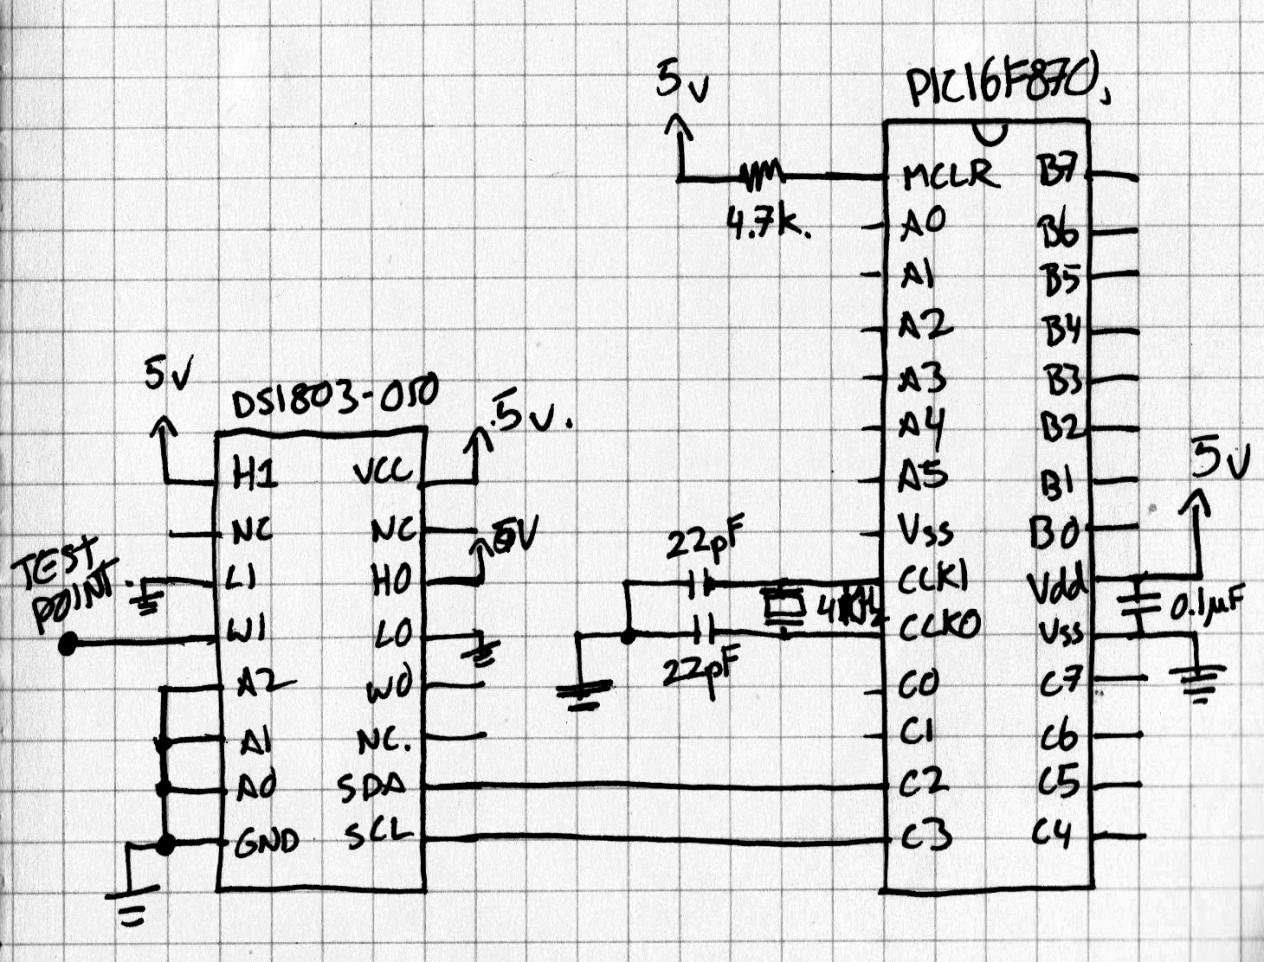 5V
PIC16F870,
MCLR B7
4.7k.
A0 B6
A1 B5
A2 B4
A3 B3
A4 B2
A5 B1
Vss B0
CLKI Vdd
CLKO Vss
C0 C7
C1 C6
C2 C5
C3 C4
5V
0.1µF
22pF
22pF
5V
DS1803-010
.5V.
H1 VCC
NC NC
5V
L1 H0
TEST
POINT.
W1 L0
A2 W0
A1 NC.
A0 SDA
GND SCL